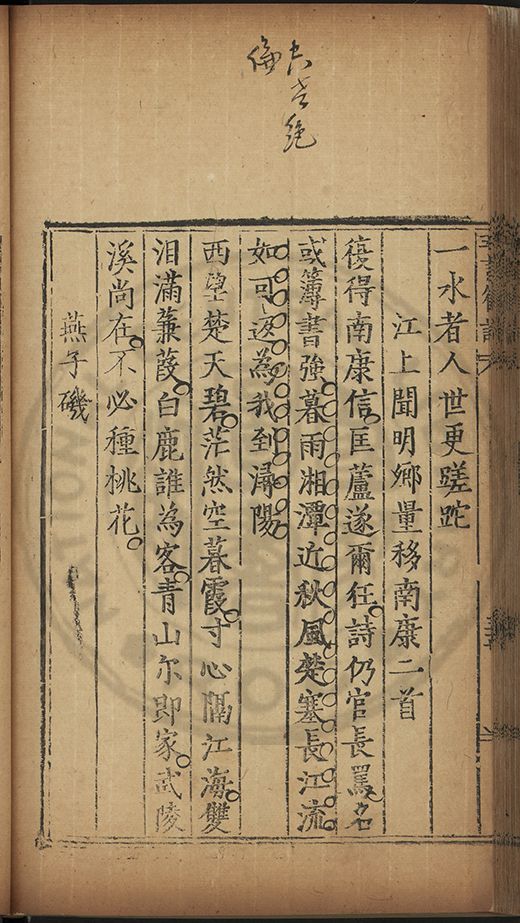 一水者人世更蹉跎
江上聞明卿量移南康二首
復得南康信匡蘆遂爾狂詩仍官長罵名
或簿書強暮雨湘潭近秋風楚塞長江流
如可返為我到潯陽
西望楚天碧茫然空暮霞寸心隔江海雙
泪滿蒹葭白鹿誰為客青山尔即家武陵
溪尚在不必種桃花
燕子磯